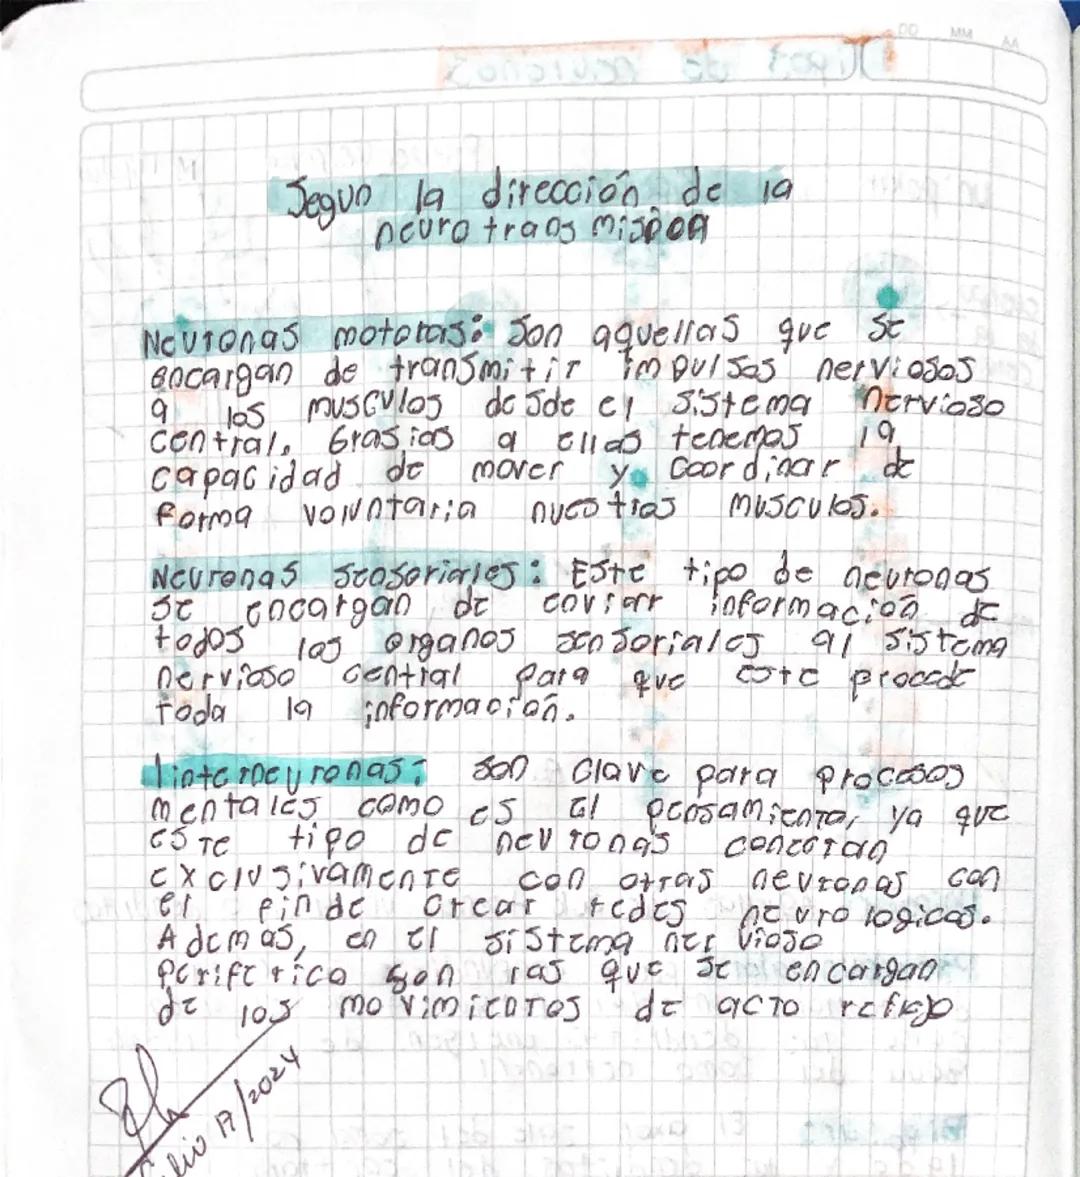 DD MM AA
Segun la dirección de la
neurotransmision
Neuronas motoras: Son aquellas que se
encargan de transmitir impulsos nerviosos
a los musculos desde el sistema nervioso
central. Grasias a ellas tenemos la
capacidad de mover y coordinar de
forma voluntaria nuestros musculos.
Neuronas sensoriales: Este tipo de neuronas
se encargan de enviar información de
todos los organos sensoriales al sistema
nervioso central para que este procede
toda la información.
Interneuronas: son clave para procesos
mentales como es el pensamiento, ya que
este tipo de neuronas conectan
exclusivamente con otras neuronas con
el fin de crear redes neurologicas.
Ademas, en el sistema nervioso
periferico son las que se encargan
de los movimientos de acto reflejo
Julio 17/2024